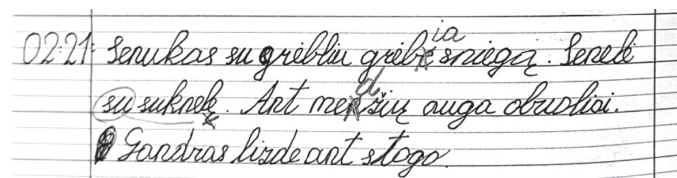 02.21. Senukas su grėbliu grėbia sniegą. Senelė
su suknele. Ant medžių auga obuoliai.
Gandras lizde ant stogo.